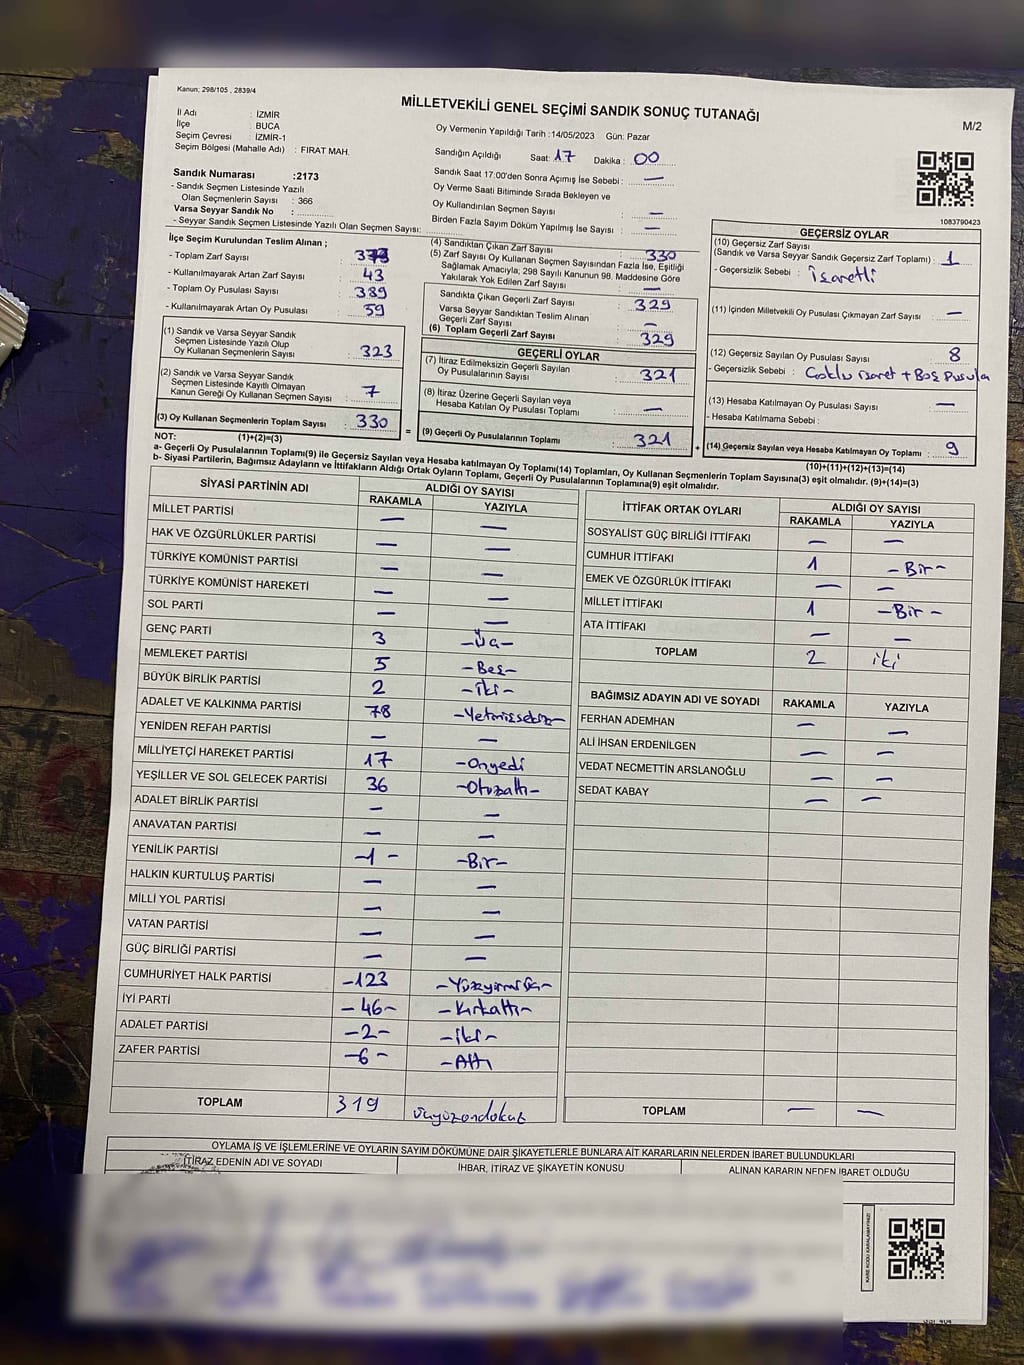 Kanun; 298/105 , 2839/4
MİLLETVEKİLİ GENEL SEÇİMİ SANDIK SONUÇ TUTANAĞI
M/2
İl Adı : İZMİR
İlçe : BUCA
Seçim Çevresi : İZMİR-1
Seçim Bölgesi (Mahalle Adı) : FIRAT MAH.
Oy Vermenin Yapıldığı Tarih :14/05/2023 Gün: Pazar
Sandığın Açıldığı Saat: 17 Dakika : 00
Sandık Saat 17:00'den Sonra Açımış İse Sebebi : —
Oy Verme Saati Bitiminde Sırada Bekleyen ve
Oy Kullandırılan Seçmen Sayısı : —
Birden Fazla Sayım Döküm Yapılmış İse Sayısı : —
Sandık Numarası :2173
- Sandık Seçmen Listesinde Yazılı
Olan Seçmenlerin Sayısı : 366
Varsa Seyyar Sandık No :
- Seyyar Sandık Seçmen Listesinde Yazılı Olan Seçmen Sayısı:
1083790423
İlçe Seçim Kurulundan Teslim Alınan ;
- Toplam Zarf Sayısı :
- Kullanılmayarak Artan Zarf Sayısı : 43
- Toplam Oy Pusulası Sayısı : 389
- Kullanılmayarak Artan Oy Pusulası : 59
(1) Sandık ve Varsa Seyyar Sandık
Seçmen Listesinde Yazılı Olup
Oy Kullanan Seçmenlerin Sayısı : 323
(2) Sandık ve Varsa Seyyar Sandık
Seçmen Listesinde Kayıtlı Olmayan
Kanun Gereği Oy Kullanan Seçmen Sayısı : 7
(3) Oy Kullanan Seçmenlerin Toplam Sayısı : 330
(4) Sandıktan Çıkan Zarf Sayısı : 330
(5) Zarf Sayısı Oy Kullanan Seçmen Sayısından Fazla İse, Eşitliği
Sağlamak Amacıyla, 298 Sayılı Kanunun 98. Maddesine Göre
Yakılarak Yok Edilen Zarf Sayısı : —
Sandıkta Çıkan Geçerli Zarf Sayısı : 329
Varsa Seyyar Sandıktan Teslim Alınan
Geçerli Zarf Sayısı : —
(6) Toplam Geçerli Zarf Sayısı : 329
GEÇERLİ OYLAR
(7) İtiraz Edilmeksizin Geçerli Sayılan
Oy Pusulalarının Sayısı : 321
(8) İtiraz Üzerine Geçerli Sayılan veya
Hesaba Katılan Oy Pusulası Toplamı : —
= (9) Geçerli Oy Pusulalarının Toplamı : 321 +
GEÇERSİZ OYLAR
(10) Geçersiz Zarf Sayısı
(Sandık ve Varsa Seyyar Sandık Geçersiz Zarf Toplamı) : 1
- Geçersizlik Sebebi : İşaretli
(11) İçinden Milletvekili Oy Pusulası Çıkmayan Zarf Sayısı : —
(12) Geçersiz Sayılan Oy Pusulası Sayısı : 8
- Geçersizlik Sebebi : Çoklu işaret + Boş Pusula
(13) Hesaba Katılmayan Oy Pusulası Sayısı : —
- Hesaba Katılmama Sebebi :
(14) Geçersiz Sayılan veya Hesaba Katılmayan Oy Toplamı : 9
NOT: (1)+(2)=(3)
(10)+(11)+(12)+(13)=(14)
a- Geçerli Oy Pusulalarının Toplamı(9) ile Geçersiz Sayılan veya Hesaba katılmayan Oy Toplamı(14) Toplamları, Oy Kullanan Seçmenlerin Toplam Sayısına(3) eşit olmalıdır. (9)+(14)=(3)
b- Siyasi Partilerin, Bağımsız Adayların ve İttifakların Aldığı Ortak Oyların Toplamı, Geçerli Oy Pusulalarının Toplamına(9) eşit olmalıdır.
SİYASİ PARTİNİN ADI ALDIĞI OY SAYISI
RAKAMLA YAZIYLA
MİLLET PARTİSİ — —
HAK VE ÖZGÜRLÜKLER PARTİSİ — —
TÜRKİYE KOMÜNİST PARTİSİ — —
TÜRKİYE KOMÜNİST HAREKETİ — —
SOL PARTİ — —
GENÇ PARTİ 3 -Üç-
MEMLEKET PARTİSİ 5 -Beş-
BÜYÜK BİRLİK PARTİSİ 2 -İki-
ADALET VE KALKINMA PARTİSİ 78 -Yetmişsekiz-
YENİDEN REFAH PARTİSİ — —
MİLLİYETÇİ HAREKET PARTİSİ 17 -Onyedi
YEŞİLLER VE SOL GELECEK PARTİSİ 36 -Otuzaltı-
ADALET BİRLİK PARTİSİ — —
ANAVATAN PARTİSİ — —
YENİLİK PARTİSİ -1- -Bir-
HALKIN KURTULUŞ PARTİSİ — —
MİLLİ YOL PARTİSİ — —
VATAN PARTİSİ — —
GÜÇ BİRLİĞİ PARTİSİ — —
CUMHURİYET HALK PARTİSİ -123 -Yüzyirmiüç-
İYİ PARTİ -46- -Kırkaltı-
ADALET PARTİSİ -2- -iki-
ZAFER PARTİSİ -6- -Altı
TOPLAM 319 üçyüzondokuz
İTTİFAK ORTAK OYLARI ALDIĞI OY SAYISI
RAKAMLA YAZIYLA
SOSYALİST GÜÇ BİRLİĞİ İTTİFAKI — —
CUMHUR İTTİFAKI 1 -Bir-
EMEK VE ÖZGÜRLÜK İTTİFAKI — —
MİLLET İTTİFAKI 1 -Bir-
ATA İTTİFAKI — —
TOPLAM 2 iki
BAĞIMSIZ ADAYIN ADI VE SOYADI RAKAMLA YAZIYLA
FERHAN ADEMHAN — —
ALİ İHSAN ERDENİLGEN — —
VEDAT NECMETTİN ARSLANOĞLU — —
SEDAT KABAY — —
TOPLAM — —
OYLAMA İŞ VE İŞLEMLERİNE VE OYLARIN SAYIM DÖKÜMÜNE DAİR ŞİKAYETLERLE BUNLARA AİT KARARLARIN NELERDEN İBARET BULUNDUKLARI
İTİRAZ EDENİN ADI VE SOYADI İHBAR, İTİRAZ VE ŞİKAYETİN KONUSU ALINAN KARARIN NEDEN İBARET OLDUĞU
KARE KODU KARALAMAYINIZ!